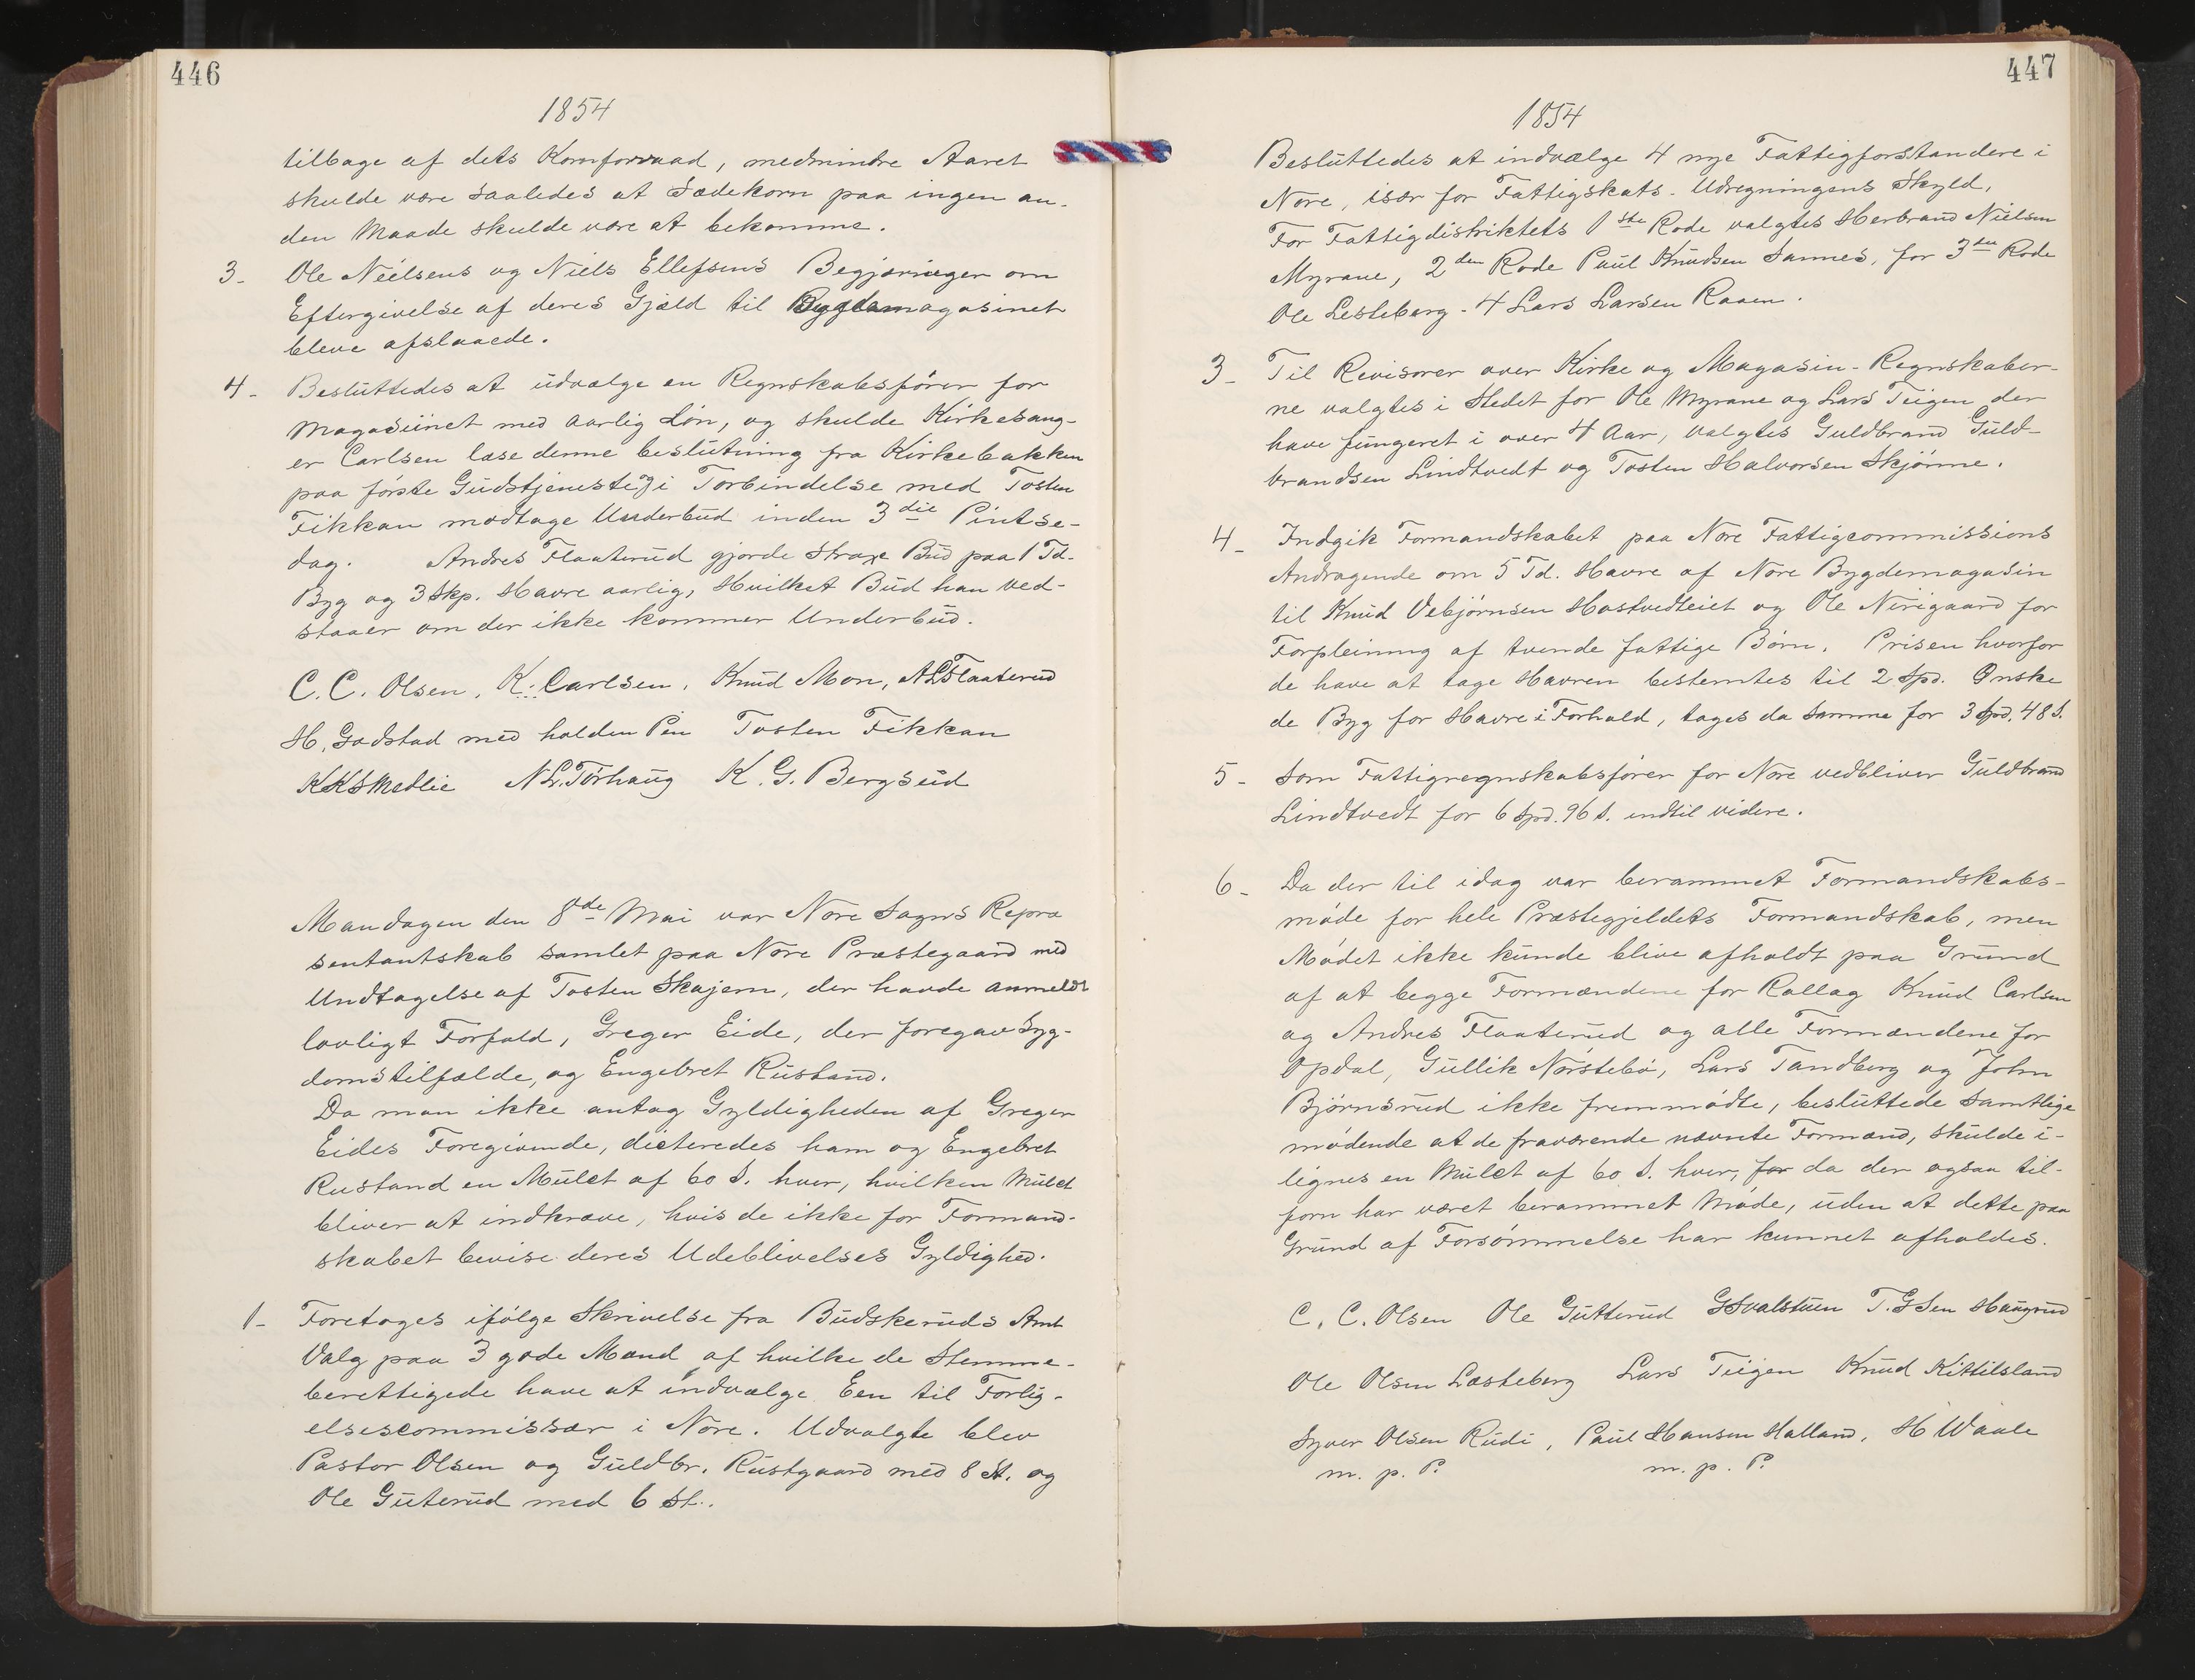 446
1854
tilbage af dets Kornforraad, medmindre Aaret
skulde være saaledes at Sædekorn paa ingen an-
den Maade skulde være at bekomme.
3- Ole Neilsens og Niels Ellefsens Begjæringer om
Eftergivelse af deres Gjæld til Bygdamagasinet
bleve afslaaede.
4- Besluttedes at udvælge en Regnskabsfører for
Magasiinet med aarlig Løn, og skulde Kirkesang-
er Carlsen læse denne beslutning fra Kirkebakken
paa første Gudstjeneste i Forbindelse med Tosten
Fikkan modtage Underbud inden 3die Pintse-
dag. Andres Flaaterud gjorde strax Bud paa 1 Td.
Byg og 3 Skp. Havre aarlig, Hvilket Bud han ved-
staaer om der ikke kommer Underbud.
C. C. Olsen, K. Carlsen, Knud Mon, ALFlaaterud
H. Godstad med holden Pen Tosten Fikkan
KKSmedlie NL.Torhaug K. G. Bergsud
Mandagen den 8de Mai var Nore Sogns Repræ
sentantskab samlet paa Nore Præstegaard med
Undtagelse af Tosten Skajem, der havde anmeldt
lovligt Forfald, Greger Eide, der foregav Syg-
domstilfælde, og Engebret Rustand.
Da man ikke antog Gyldigheden af Greger
Eides Foregivende, dicteredes ham og Engebret
Rustand en Mulct af 60 S. hver, hvilken Mulct
bliver at indkræve, hvis de ikke for Formand-
skabet bevise deres Udeblivelses Gyldighed.
1- Foretoges ifølge Skrivelse fra Budskeruds Amt
Valg paa 3 gode Mænd af hvilke de Stemme-
berettigede have at indvælge Een til Forlig-
elsescommissær i Nore. Udvalgte blev
Pastor Olsen og Guldbr. Rustgaard med 8 St. og
Ole Guterud med 6 St.
447
1854
Besluttedes at indvælge 4 nye Fattigforstandere i
Nore, især for Fattigskats-Udregningens Skyld,
For Fattigdistriktets 1ste Rode valgtes Herbrand Nielsen
Myrane, 2den Rode Paul Knudsen Sannes, for 3die Rode
Ole Lesteberg - 4 Lars Larsen Raaen.
3- Til Revisorer over Kirke og Magasin-Regnskaber-
ne valgtes i Stedet for Ole Myrane og Lars Teigen der
have fungeret i over 4 Aar, valgtes Guldbrand Guld-
brandsen Lindtvedt og Tosten Halvorsen Skjønne.
4- Indgik Formandskabet paa Nore Fattigcommissions
Andragende om 5 Td. Havre af Nore Bygdemagasin
til Knud Vebjørnsen Hostvedteiet og Ole Nørigaard for
Forpleining af tvende fattige Børn. Prisen hvorfor
de have at tage Havren bestemtes til 2 Spd. Ønske
de Byg for Havre i Forhold, tages da Samme for 3 Spd. 48 S.
5- Som Fattigregnskabsfører for Nore vedbliver Guldbrand
Lindtvedt for 6 Spd. 96 S. indtil videre.
6- Da der til idag var berammet Formandskabs-
møde for hele Præstegjeldets Formandskab, men
Mødet ikke kunde blive afholdt paa Grund
af at begge Formændene for Rollag Knud Carlsen
og Andres Flaaterud og alle Formændene for
Opdal, Gullik Nørstebø, Lars Tandberg og John
Bjørnsrud ikke fremmødte, besluttede Samtlige
mødende at de fraværende nævnte Formænd, skulde i-
lignes en Mulct af 60 S. hver, for da der ogsaa til-
forn har været berammet Møde, uden at dette paa
Grund af Forsømmelse har kunnet afholdes.
C. C. Olsen Ole Gutterud GSvalstuen T.GSen Haugrud
Ole Olsen Læsteberg Lars Teigen Knud Kittilsland
Syver Olsen Rudi, Paul Hansen Halland, H Waale
m. p. P. m. p. P.